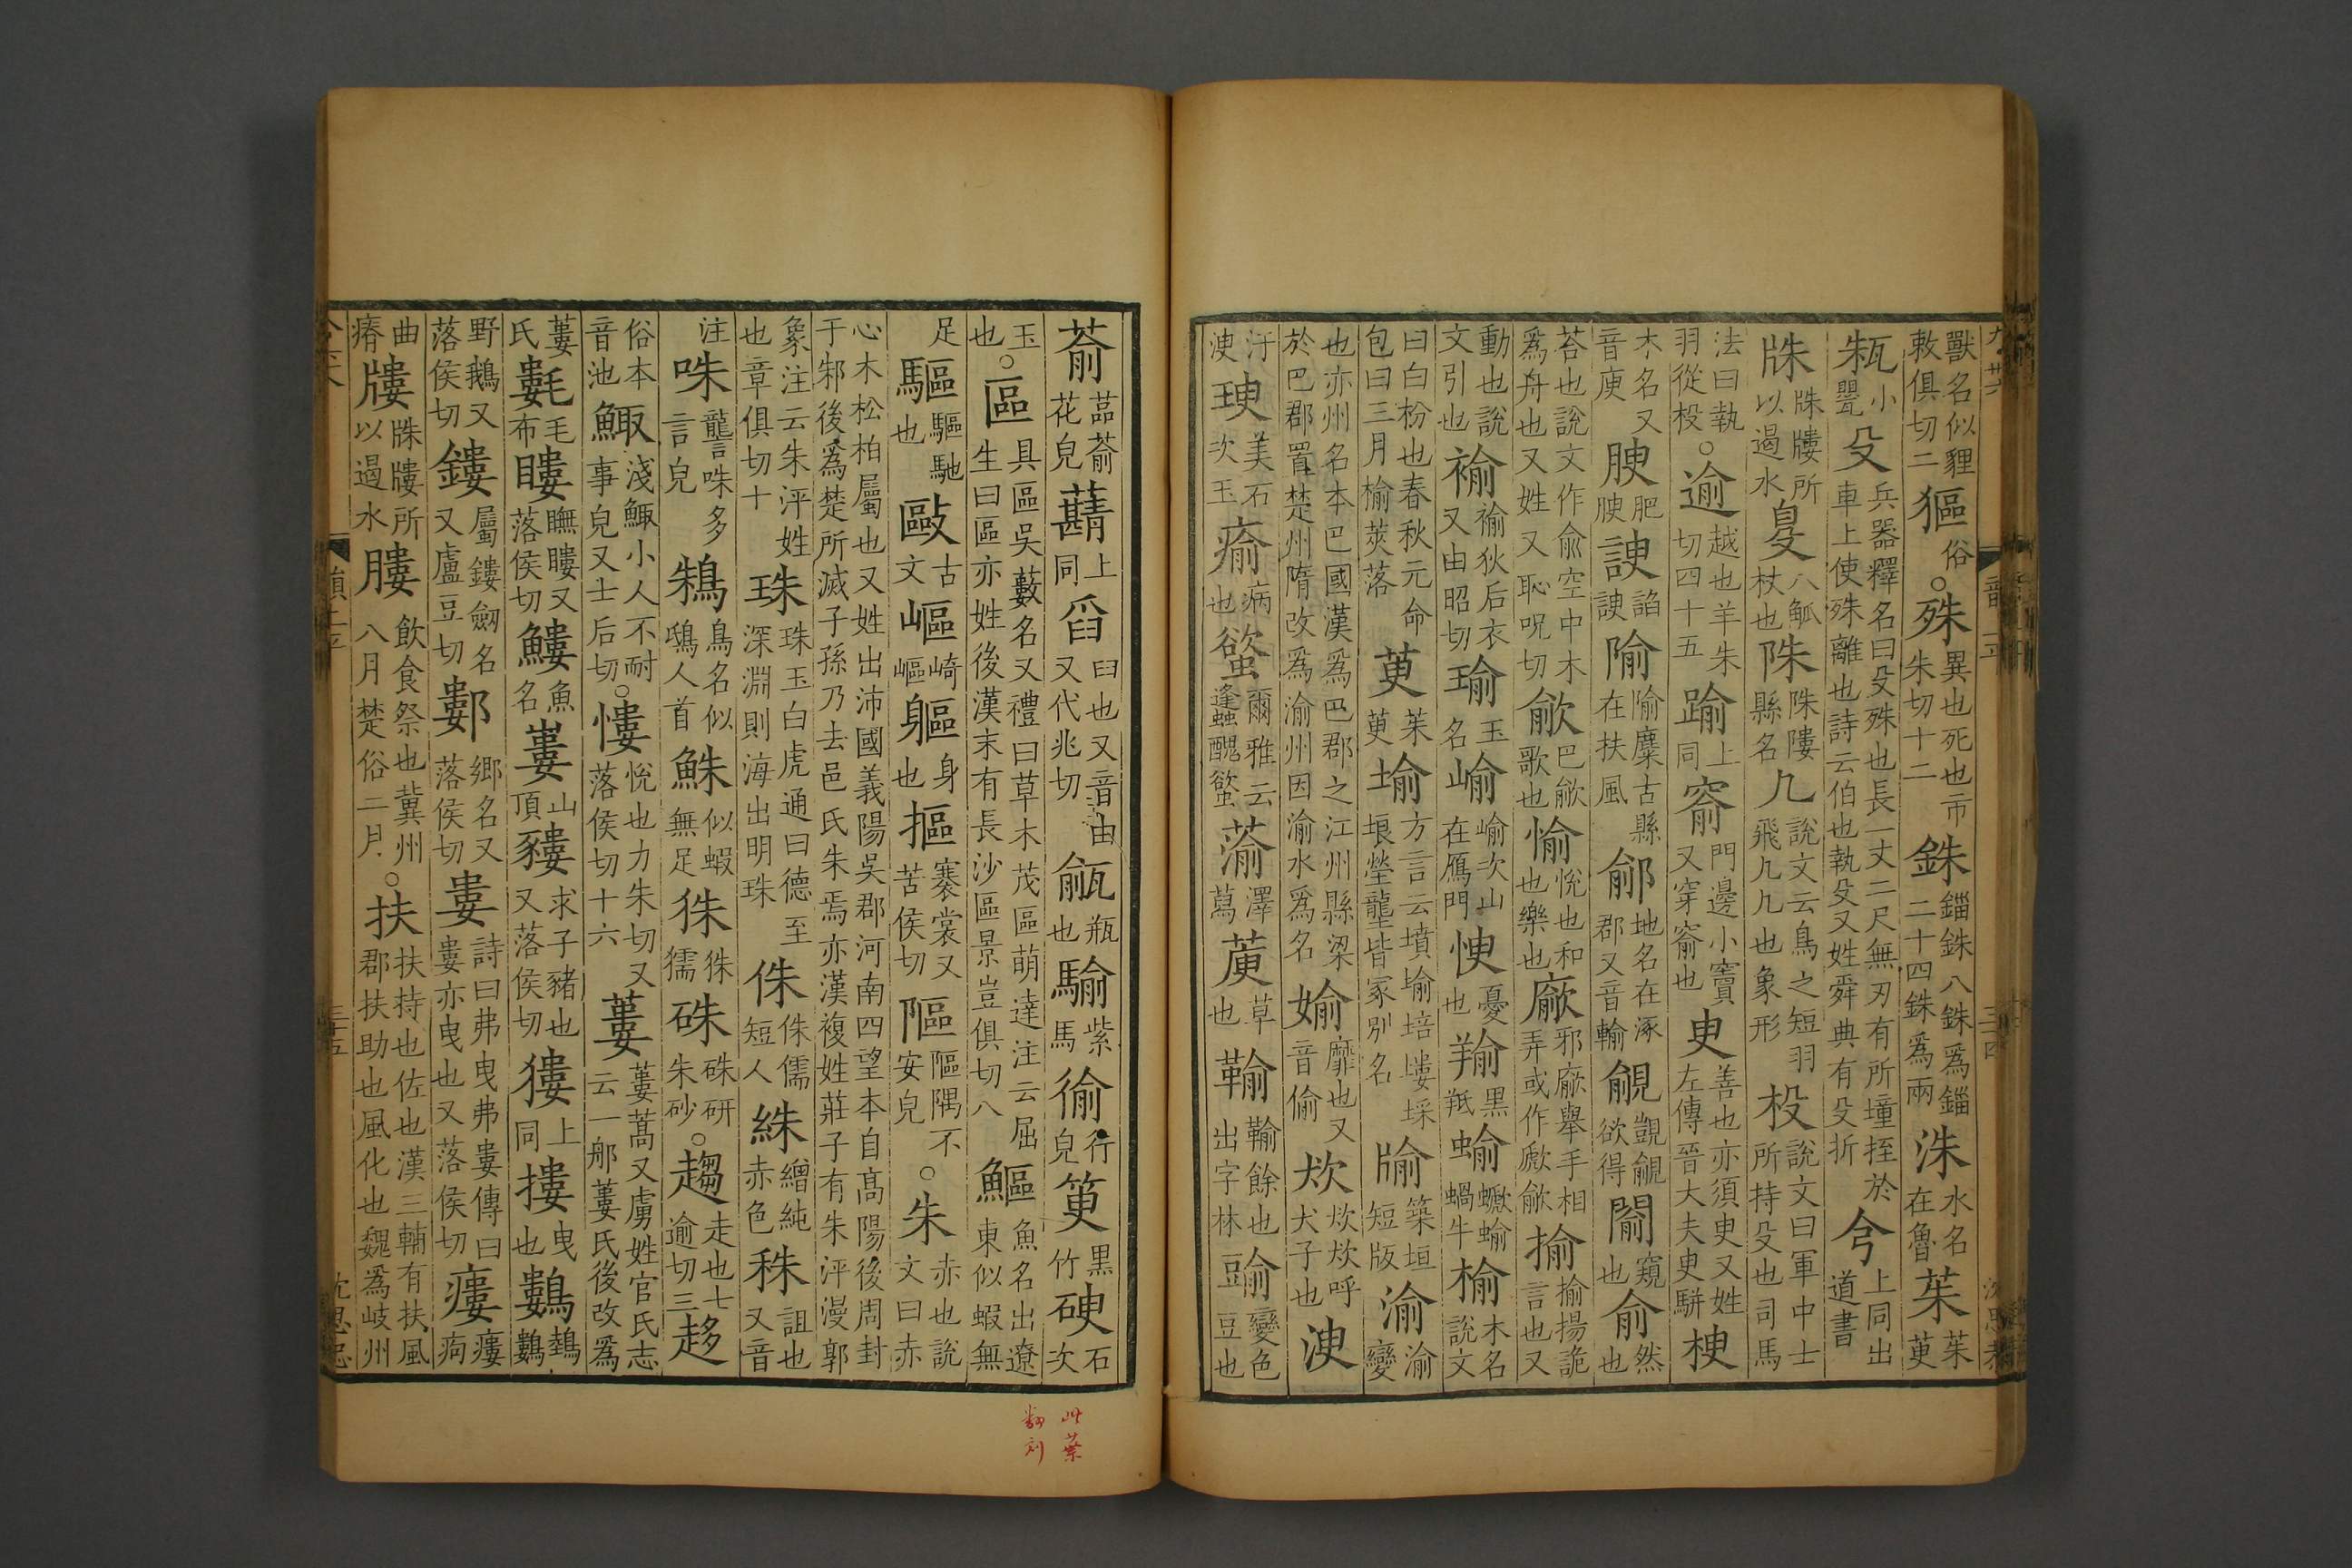 獸名似貍敕俱切二貙俗○殊異也死也市朱切十二銖錙銖八銖爲錙二十四銖爲兩洙水名在魯茱茱萸
小甖殳兵器釋名曰殳殊也長一丈二尺無刃有所撞挃於車上使殊離也詩云伯也執殳又姓舜典有殳折上同出道書
所以遏水八觚杖也陎陎陯縣名几說文云鳥之短羽飛几几也象形杸說文曰軍中士所持殳也司馬
法曰執羽從杸○逾越也羊朱切四十五踰上同窬門邊小竇又穿窬也臾善也亦須臾又姓左傳晉大夫臾駢楰
木名又音庾腴肥腴諛諂諛隃隃麋古縣在扶風鄃地名在涿郡又音輸覦覬覦欲得闟窺也俞然也
荅也說文作兪空中木爲舟也又姓又恥呪切歈巴歈歌也愉悅也和也樂也廞邪廞舉手相弄或作歋歈揄揄揚詭言也又
動也說文引也褕褕狄后衣又由昭切瑜玉名崳崳次山在鴈門㥚憂也羭黑羝蝓螔蝓蝸牛榆木名說文
曰白枌也春秋元命包曰三月榆莢落萸茱萸堬方言云墳堬培塿埰埌塋壟皆冢別名牏築垣短版渝渝變
也亦州名本巴國漢爲巴郡之江州縣梁於巴郡置楚州隋改爲渝州因渝水爲名媮靡也又音偷㺄㺄㺄呼犬子也㳛
汙㳛瑌美石次玉瘉病也蝥爾雅云蠭醜螸蕍澤蕮萮草也䩱䩱餘也出字林䜽變色豆也
蕍蓲蕍花皃上同舀臼也又音由又代兆切㼶瓶也騟紫馬㣃行皃篻黑竹碝石次
玉也○區具區吳藪名又禮曰草木茂區萌達注云屈生曰區亦姓後漢末有長沙區景豈俱切八鰸魚名出遼東似蝦無
足驅驅馳也敺古文嶇崎嶇軀身也摳褰裳又苦侯切陬隅不安皃○朱赤也說文曰赤
心木松柏屬也又姓出沛國義陽吳郡河南四望本自高陽後周封于邾後爲楚所滅子孫乃去邑氏朱焉亦漢複姓莊子有朱泙漫郭
象注云朱泙姓也章俱切十珠珠玉白虎通曰德至深淵則海出明珠侏侏儒短人絑繒純赤色䄷詛也又音
注咮𧮩咮多言皃鴸鳥名似鴟人首鮢似蝦無足㹥㹥獳硃硃研朱砂○趨走也七逾切三趍
俗本音池鯫淺鯫小人不耐事皃又士后切○慺悅也力朱切又落侯切十六蔞蔞蒿又虜姓官氏志云一那蔞氏後改爲
蔞氏氀毛布瞜瞴瞜又落侯切鱳魚名嶁山頂貗求子豬也又落侯切獀上同摟曳也鷜鵱鷜
野鵝又落侯切鏤屬鏤劒名又盧豆切鄻鄉名又落侯切婁詩曰弗曳弗婁傳曰婁亦曳也又落侯切瘻瘻痀
曲瘠㸡所以遏水膢飲食祭也冀州八月楚俗二月○扶扶持也佐也漢三輔有扶風郡扶助也風化也魏爲岐州
此葉
翻刻